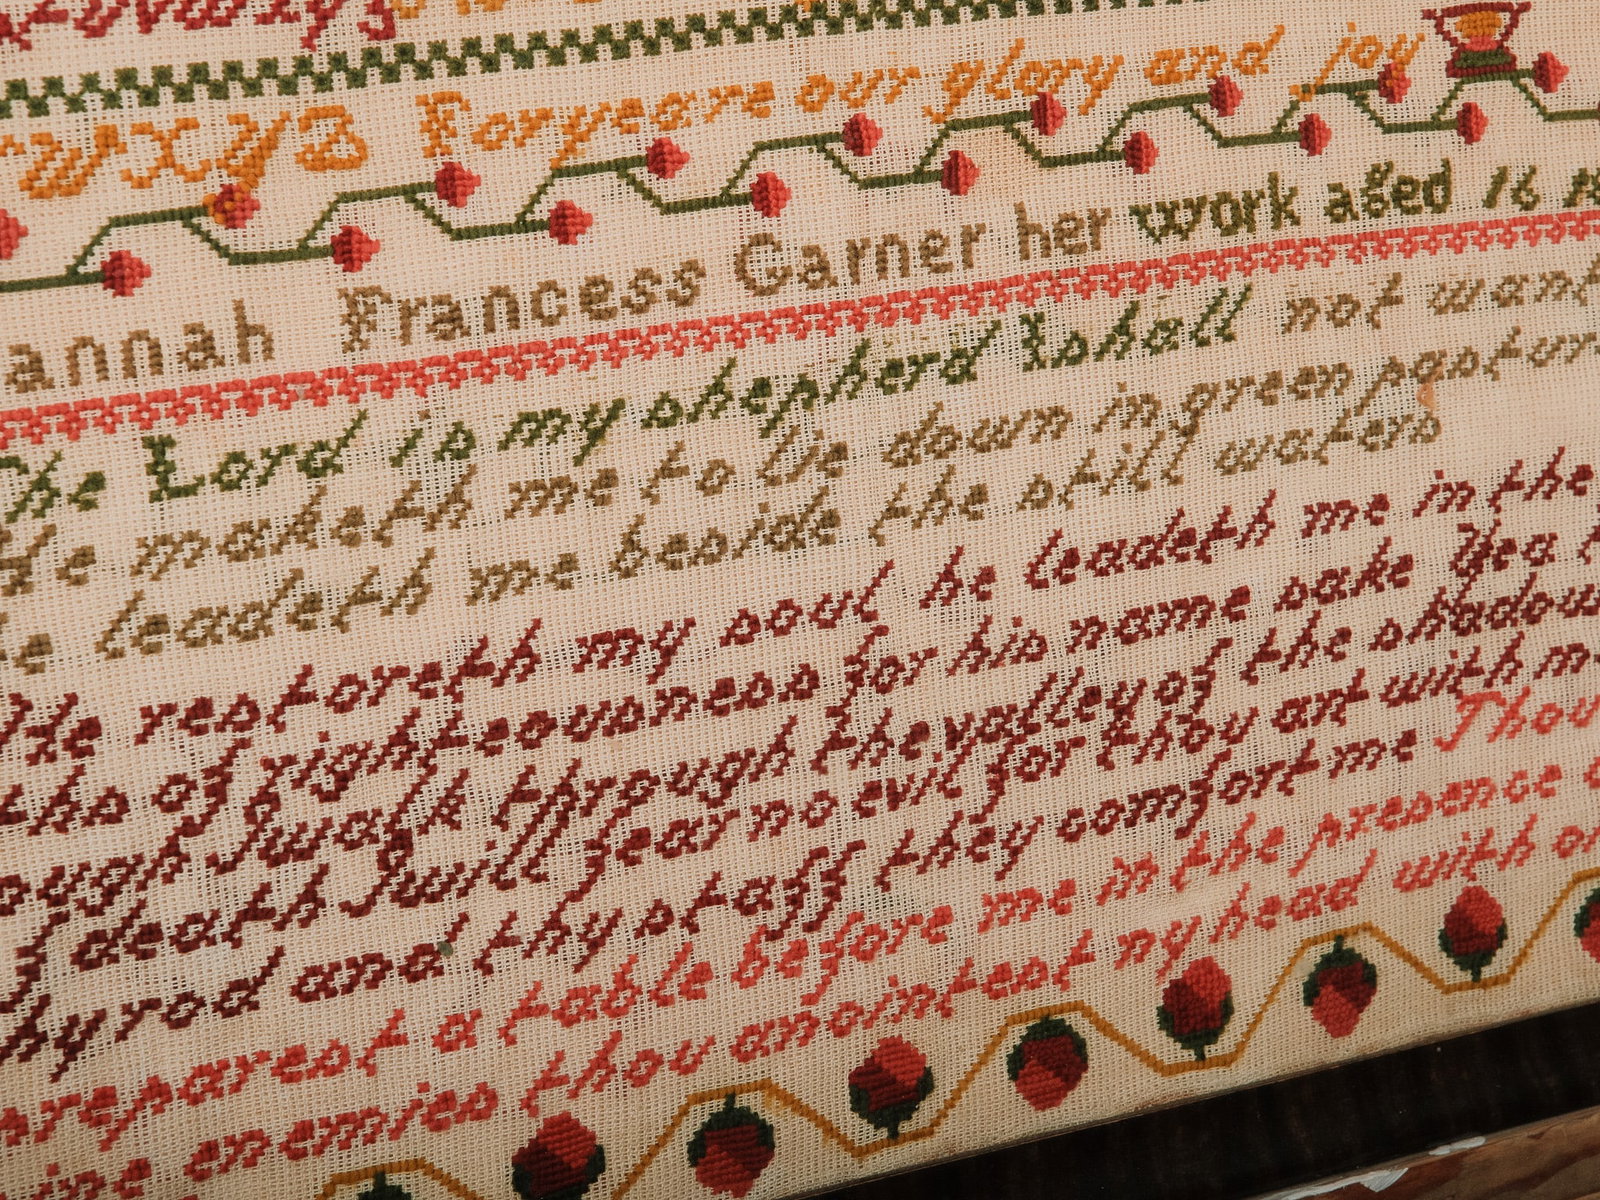 wxyz For ye are our glory and joy
annah Francess Garner her work aged 16
The Lord is my shepherd I shall not want
He maketh me to lie down in green pastur
he leadeth me beside the still waters
He restoreth my soul he leadeth me in the
ths of righteousness for his name sake Yea
ough I walk through the valley of the shadow
f death I will fear no evil for thou art with m
hy rod and thy staff they comfort me Thou
preparest a table before me in the presence
ine enemies thou anointest my head with